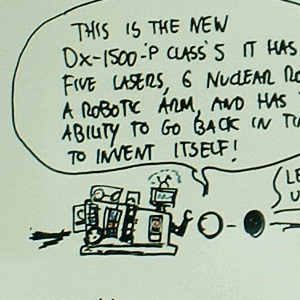 THIS IS THE NEW
DX-1500-'P CLASS'5 IT HAS
FIVE LASERS, 6 NUCLEAR
A ROBOTIC ARM, AND HAS
ABILITY TO GO BACK IN
TO INVENT ITSELF!